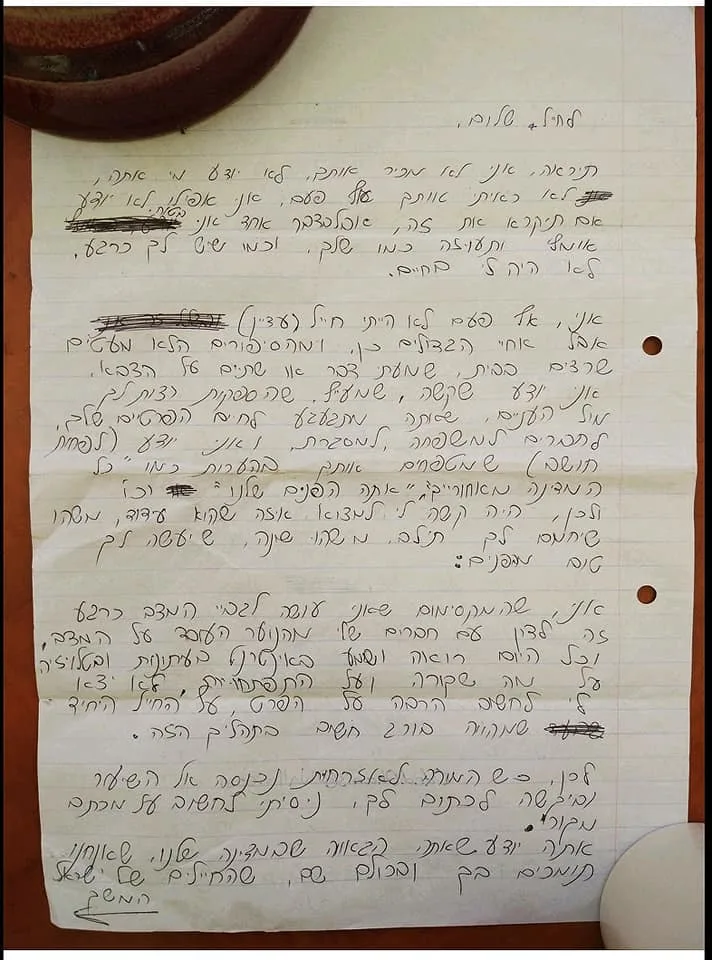 לחייל, שלום.
תיראה, אני לא מכיר אותך, לא יודע מי אתה,
לא ראיתי אותך אף פעם, אני אפילו לא יודע
אם תיקרא את זה, אבל בדבר אחד אני בטוח:
אומץ ותעוזה כמו שלך, וכמו שיש לך כרגע,
לא היה לי בחיים.
אני, אף פעם לא הייתי חייל (עדיין)
אבל אחי הגדולים כן, ומהסיפורים הלא מעטים
שרצים בבית, שמעתי דבר או שתים על הצבא.
אני יודע שקשה, שמעייף, שהספקות רצות לך
מול העניים, שאתה מתגעגע לחיים הפרטים שלך,
לחברים למשפחה, למסגרת, ואני יודע (לפחות
חושב) שמטפחים אותך בהערות כמו "כל
המדינה מאחורייך", "אתה הפנים שלנו" וכו'
ולכן, היה קשה לי למצוא איזה שהוא עידוד, משהו
שיחמם לך ת'לב, משהו שונה, שיעשה לך
טוב מבפנים:
אני, שהמקסימום שאני עושה לגביי המצב כרגע
זה לדון עם חברים שלי מהנוער העובד על המצב,
וכל היום רואה ושמע באינטרנט בעיתונות ובטלויזיה
על מה שקורה ועל התפתחויות, לא יצא
לי לחשוב הרבה על הפרט, על החייל היחיד
שמהווה בורג חשוב בתהליך הזה.
לכן, כש המורה לאזרחות נכנסה אל השיעור
וביקשה לכתוב לך, ניסיתי לחשוב על מכתב
מקורי.
אתה יודע שאתה הגאווה שבמדינה שלנו, שאנחנו
תומכים בך ובכולם שם, שהחיילים של ישראל
המשך